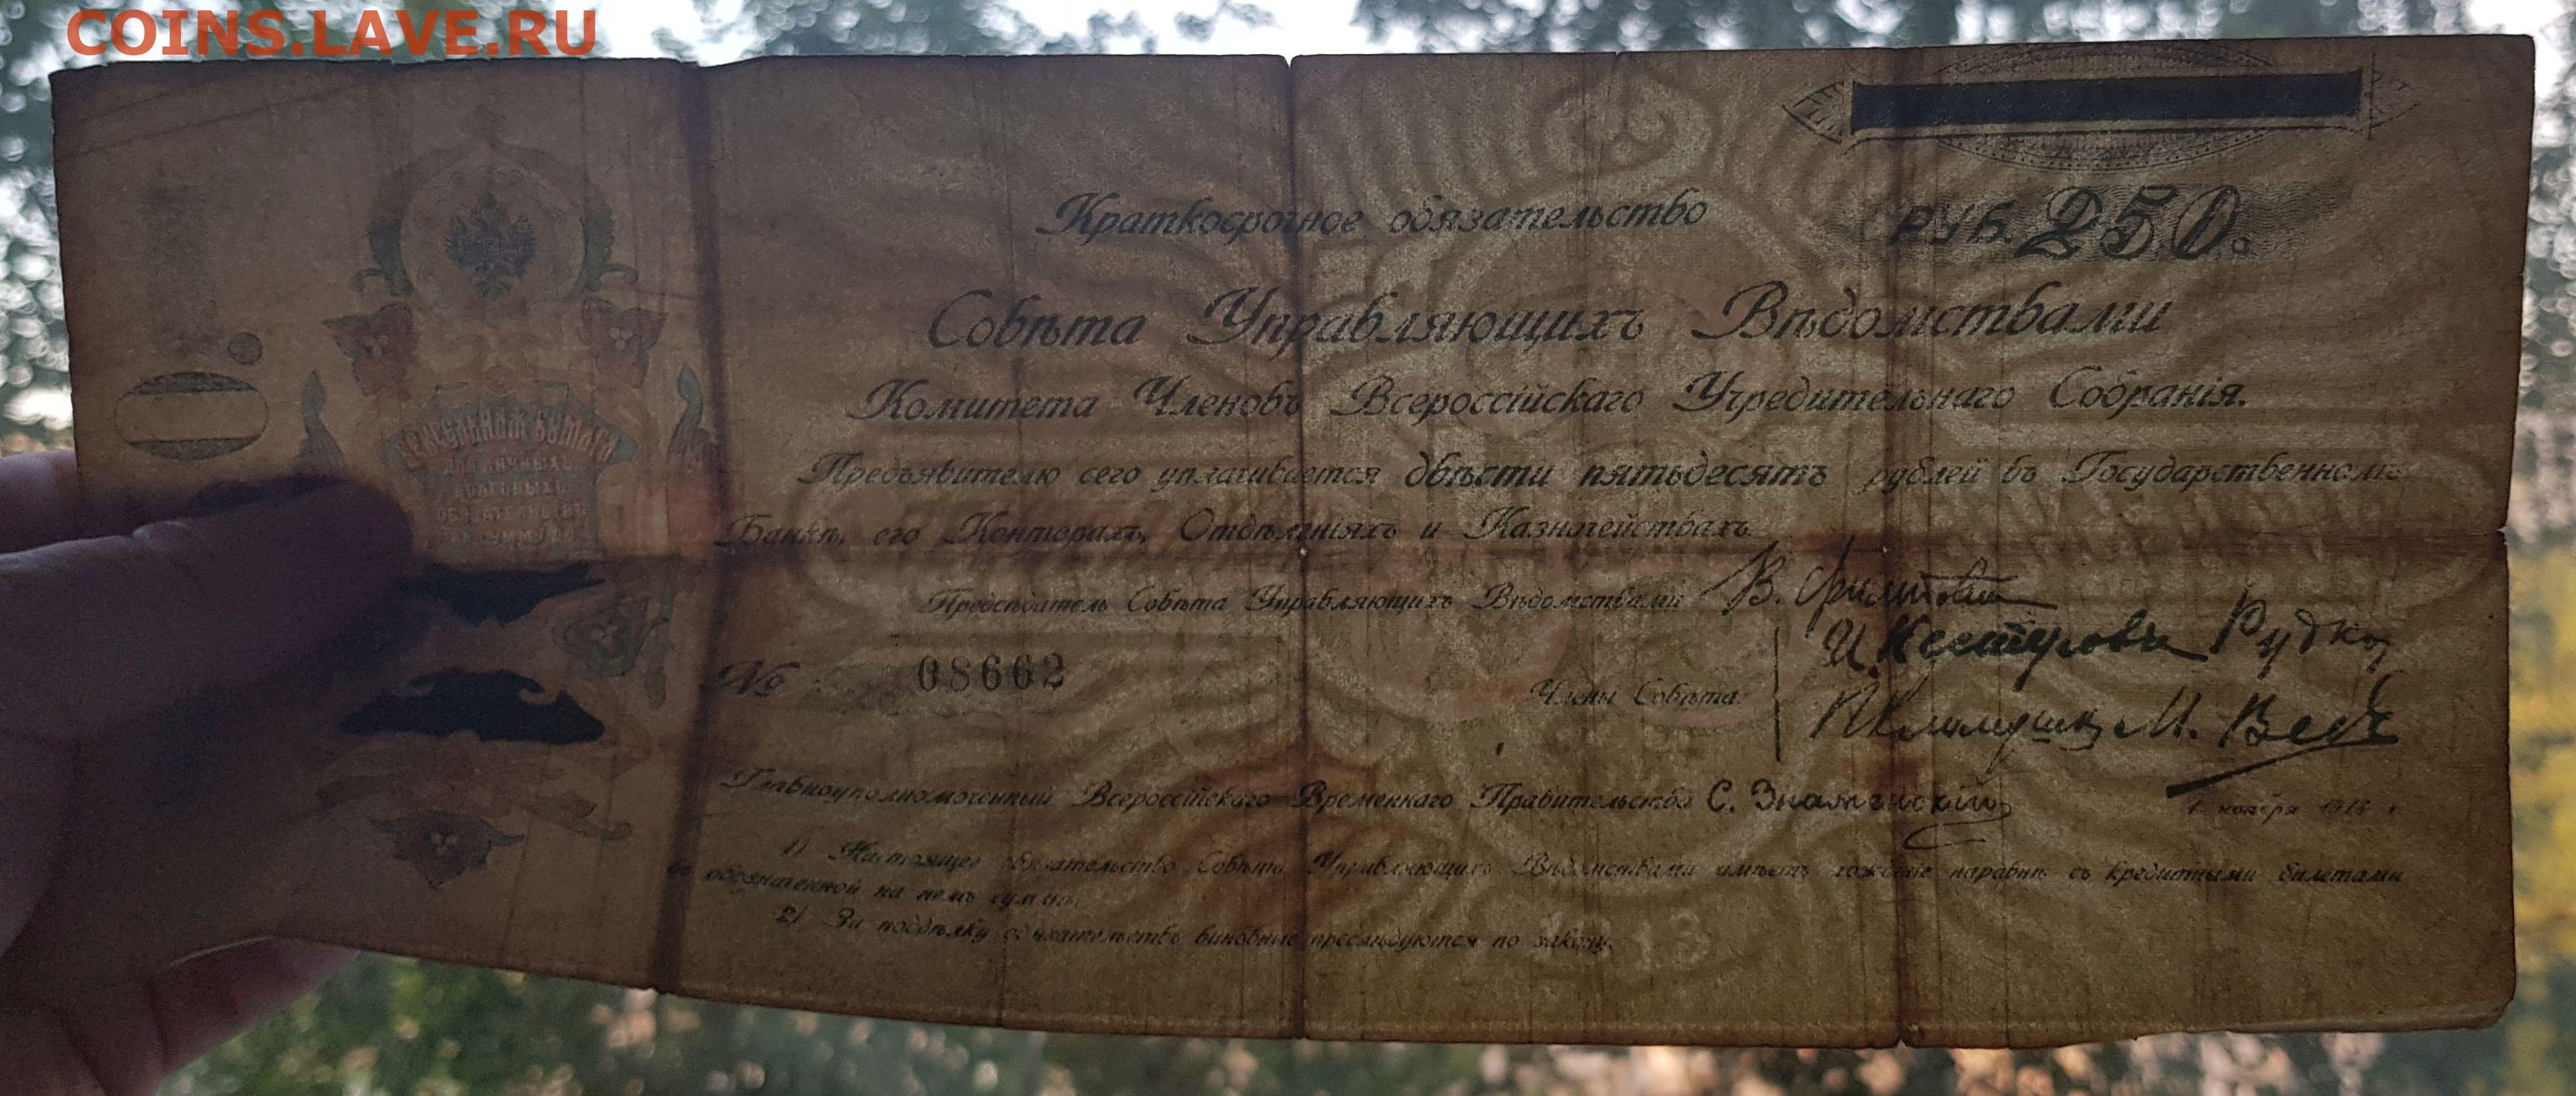 COINS.LAVE.RU
Краткосрочное обязательство
РУБ. 250.
Совѣта Управляющихъ Вѣдомствами
Комитета Членовъ Всероссійскаго Учредительнаго Собранія.
Предъявителю сего уплачивается двѣсти пятьдесятъ рублей въ Государственномъ
Банкѣ, его Конторахъ, Отдѣленіяхъ и Казначействахъ
ВЕКСЕЛЬНАЯ БУМАГА
ДЛЯ ЛИЧНЫХЪ
ДОЛГОВЫХЪ
ОБЯЗАТЕЛЬСТВЪ
НА СУММУ ДО
Предсѣдатель Совѣта Управляющихъ Вѣдомствами В.
И. Нестеровъ Рудко
№ 08662
Члены Совѣта
П Климушк М. Вед
Главноуполномоченный Всероссійскаго Временнаго Правительства С. Знаменскій
1 ноября 1918 г
1) Настоящее обязательство Совѣта Управляющихъ Вѣдомствами имѣетъ хожденіе наравнѣ съ кредитными билетами
въ обозначенной на немъ суммѣ.
2) За поддѣлку обязательствъ виновные преслѣдуются по закону.